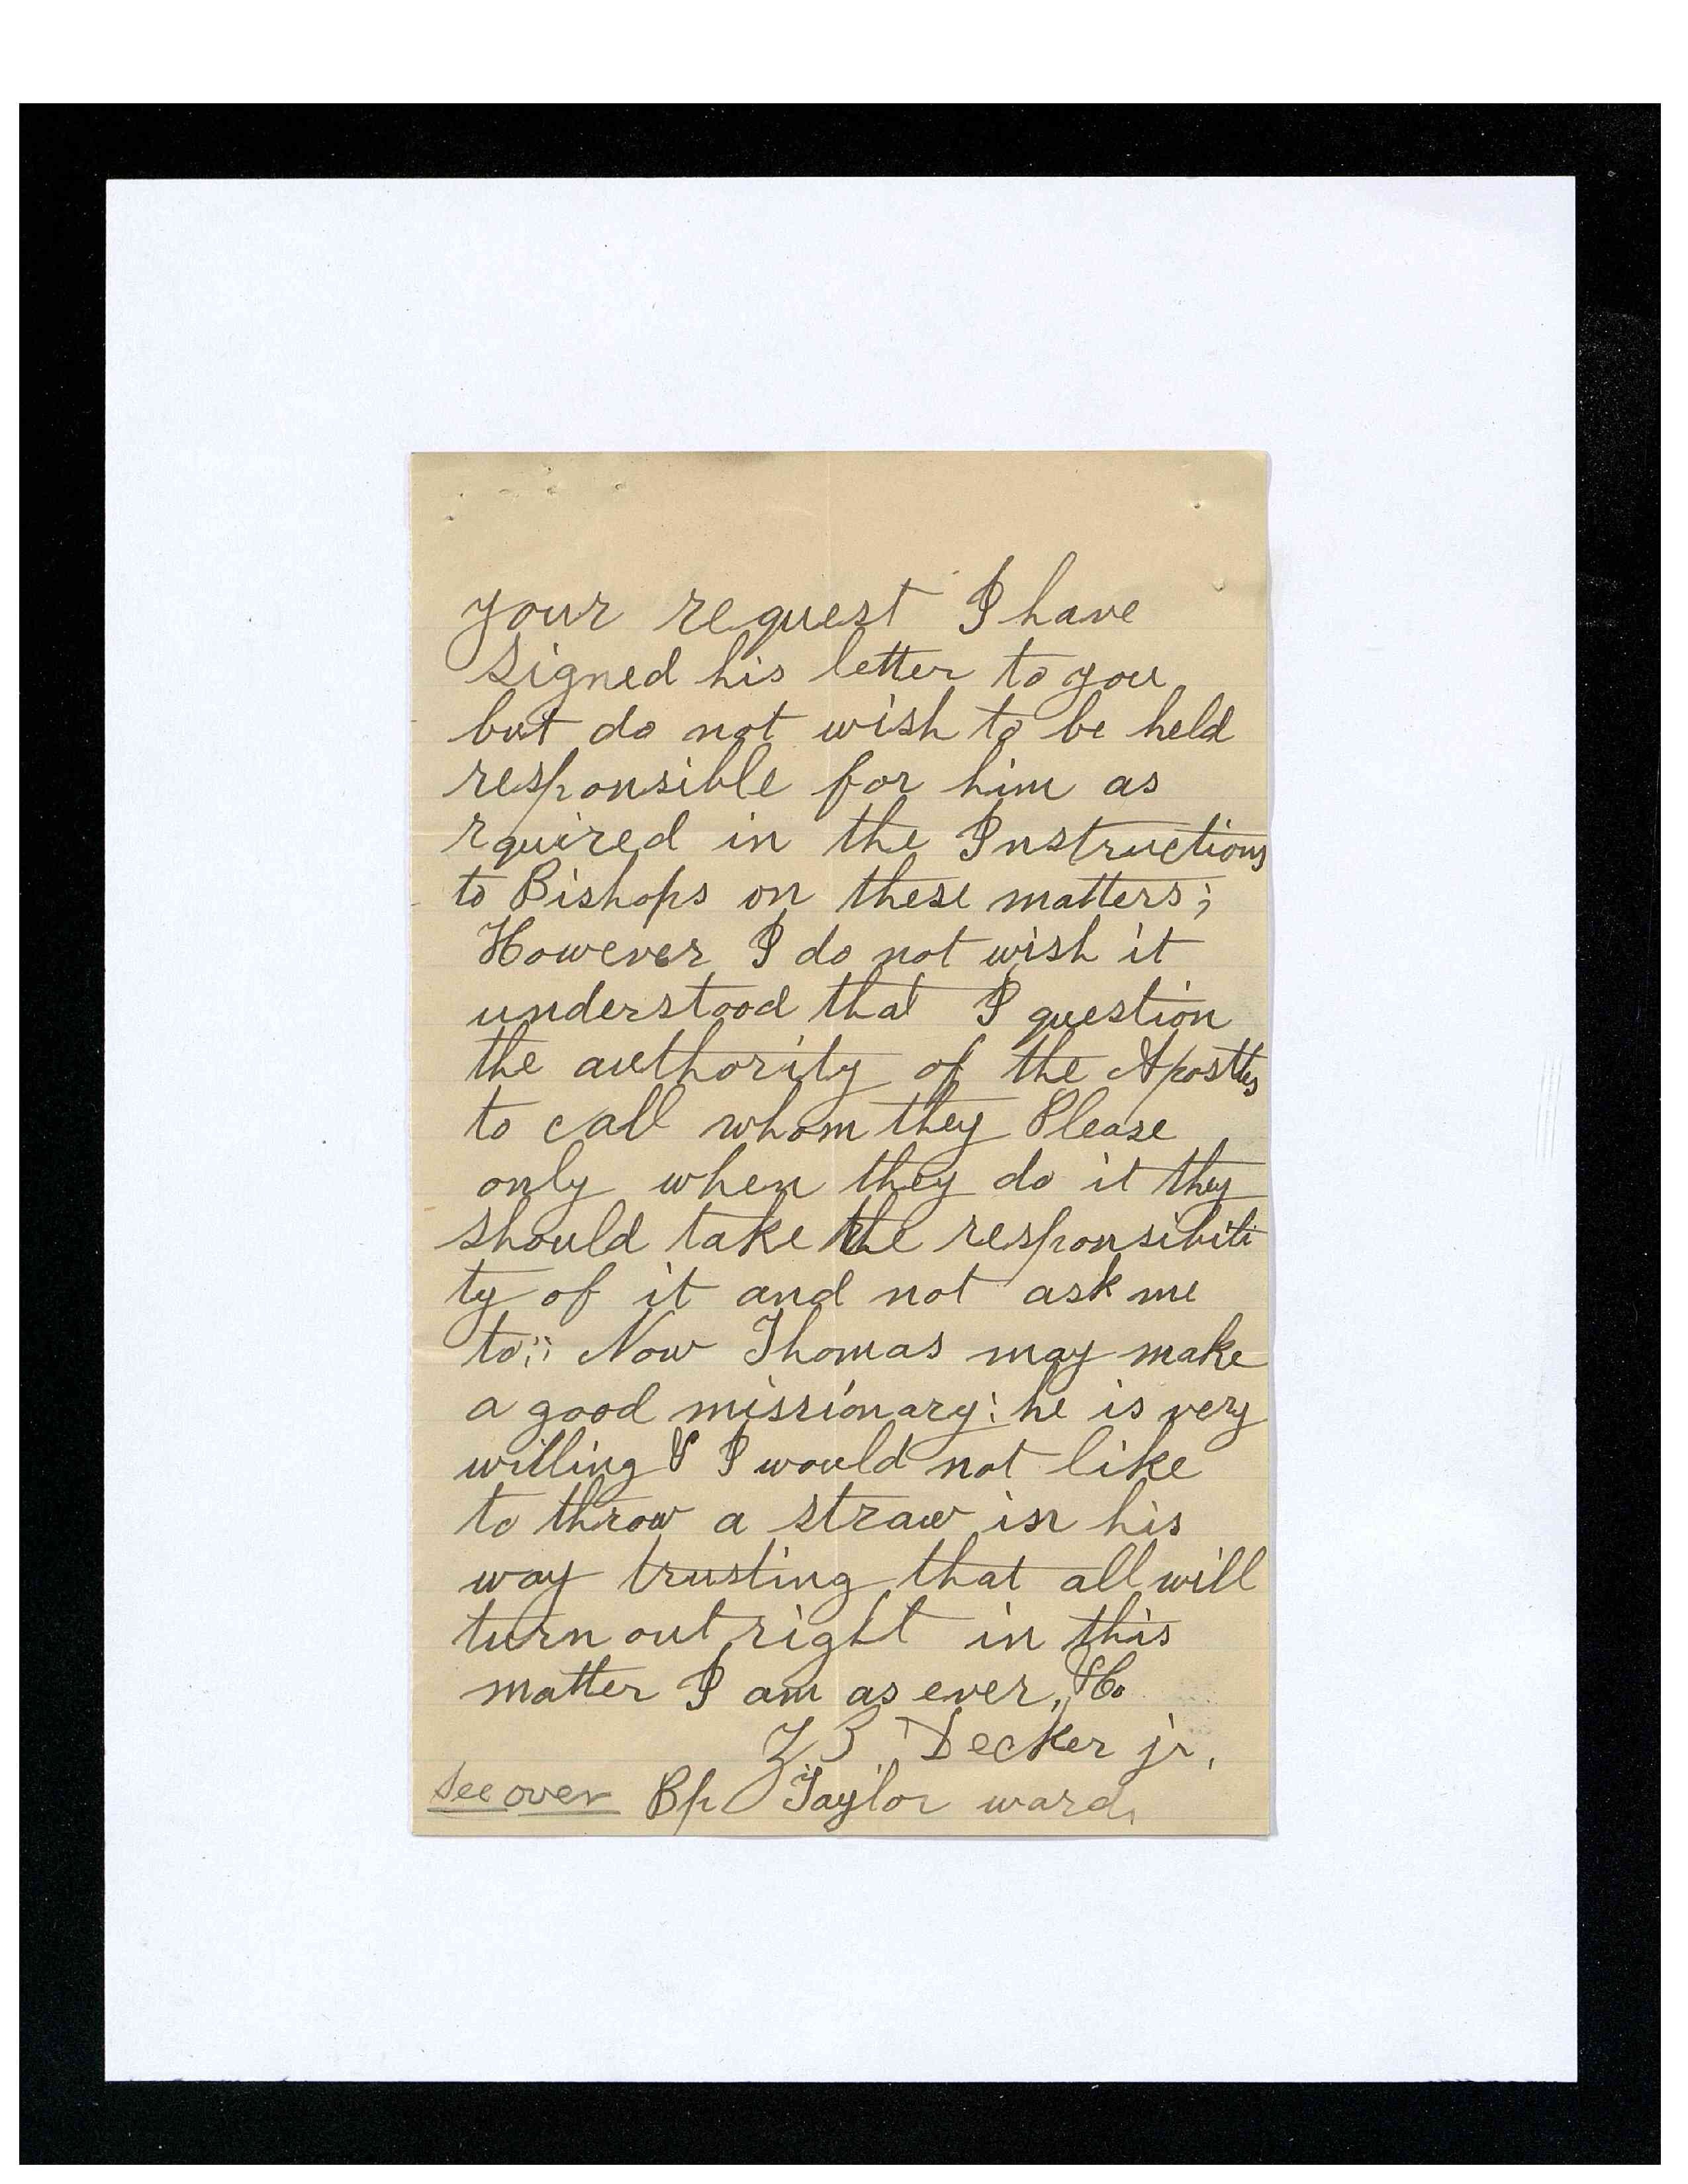 your request I have
signed his letter to you
but do not wish to be held
responsible for him as
rquired in the Instructions
to Bishops on these matters;
However I do not wish it
understood that I question
the authority of the Apostles
to call whom they Please
only when they do it they
should take the responsibili
ty of it and not ask me
to;: Now Thomas may make
a good missionary: he is very
willing & I would not like
to throw a straw in his
way trusting that all will
turn out right in this
matter I am as ever,
Z. B. Decker jr.
see over Bp Taylor ward.